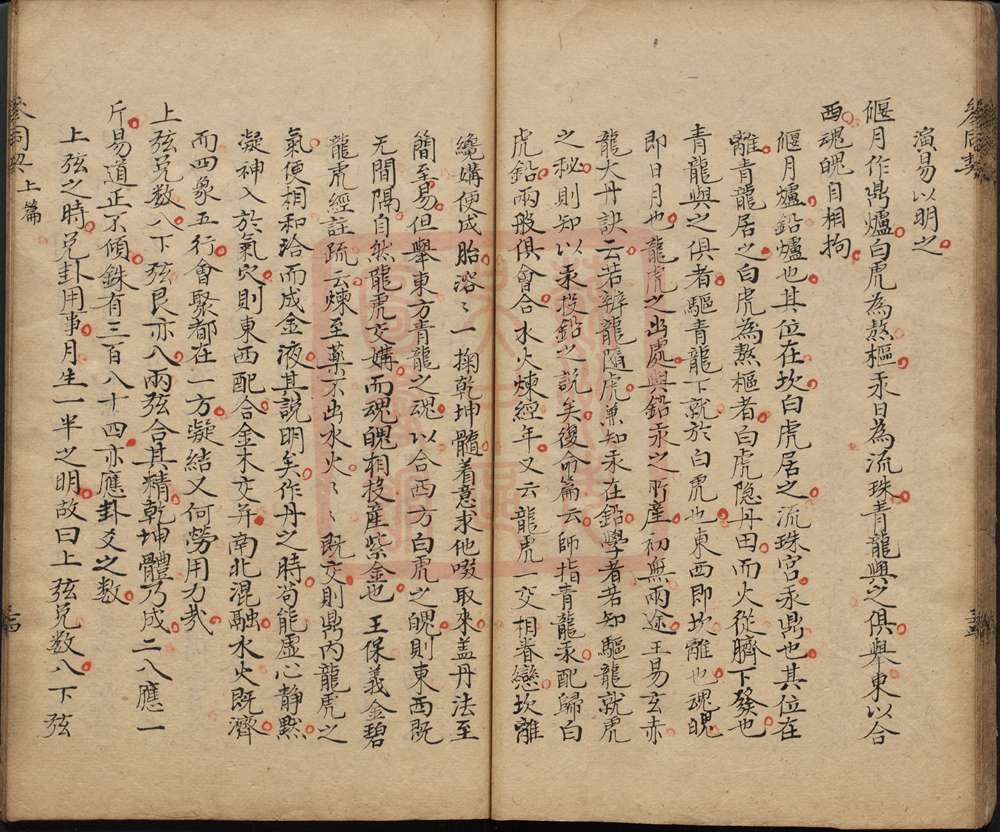 參同契
演易以明之
偃月作鼎爐白虎為熬樞汞日為流珠青龍與之俱舉東以合
西魂魄自相拘
偃月爐鉛爐也其位在坎白虎居之流珠宮汞鼎也其位在
離青龍居之白虎為熬樞者白虎隐丹田而火從臍下發也
青龍與之俱者驅青龍下就於白虎也東西即坎離也魂魄
即日月也龍虎之出處與鉛汞之所產初無兩途王易玄赤
龍大丹訣云若辨龍隨虎兼知汞在鉛學者若知驅龍就虎
之秘則知以汞投鉛之說矣復命篇云師指青龍汞配歸白
虎鉛兩般俱會合水火煉經年又云龍虎一交相眷戀坎離
纔媾便成胎溶〻一掬乾坤髓着意求他啜取來盖丹法至
簡至易但舉東方青龍之魂以合西方白虎之魄則東西既
无間隔自然龍虎交媾而魂魄相投產紫金也王保義金碧
龍虎經註疏云煉至藥不出水火〻〻既交則鼎內龍虎之
氣便相和洽而成金液其說明矣作丹之時苟能虛心静默
凝神入於氣穴則東西配合金木交并南北混融水火既濟
而四象五行會聚都在一方凝結又何勞用力哉
上弦兌數八下弦艮亦八兩弦合其精乾坤體乃成二八應一
斤易道正不傾銖有三百八十四亦應卦爻之數
上弦之時兌卦用事月生一半之明故曰上弦兌數八下弦
參同契上篇